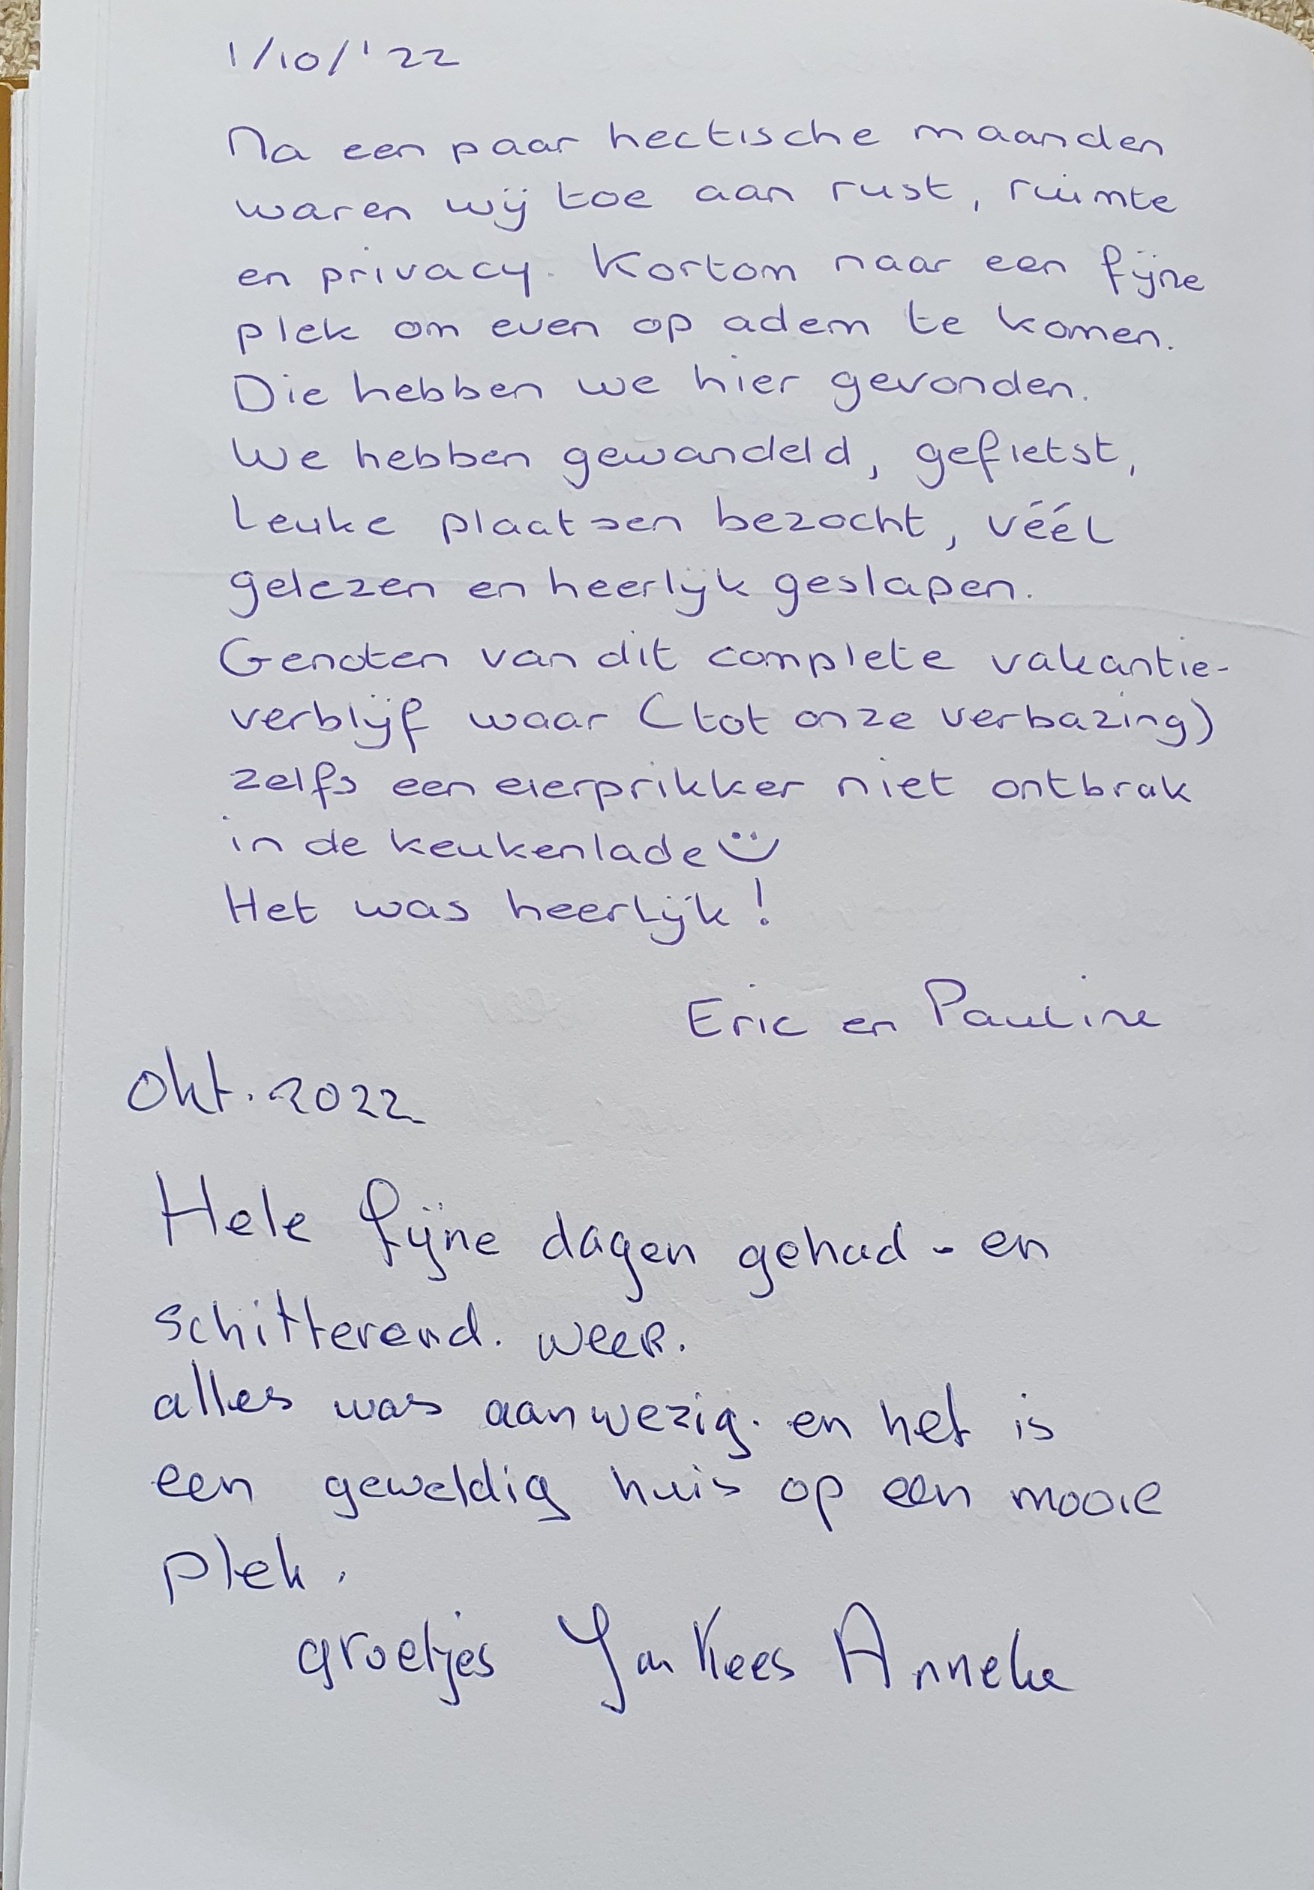 1/10/'22
Na een paar hectische maanden
waren wij toe aan rust, ruimte
en privacy. Kortom naar een fijne
plek om even op adem te komen.
Die hebben we hier gevonden.
We hebben gewandeld, gefietst,
leuke plaatsen bezocht, véél
gelezen en heerlijk geslapen.
Genoten van dit complete vakantie-
verblijf waar (tot onze verbazing)
zelfs een eierprikker niet ontbrak
in de keukenlade
Het was heerlijk!
Eric en Pauline
Okt. 2022
Hele fijne dagen gehad - en
schitterend. weer.
alles was aanwezig. en het is
een geweldig huis op een mooie
plek.
groetjes Jan Kees Anneke